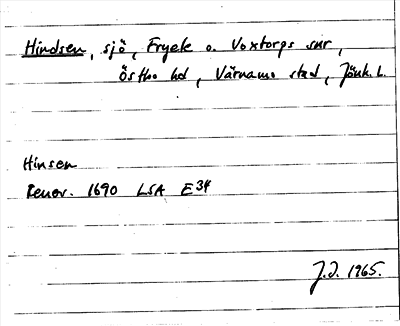 Hindsen, sjö, Fryele o. Voxtorps snr,
Östbo hd, Värnamo stad, Jönk. l.
Hinsen
Renov. 1690 LSA E34
J.J. 1965.